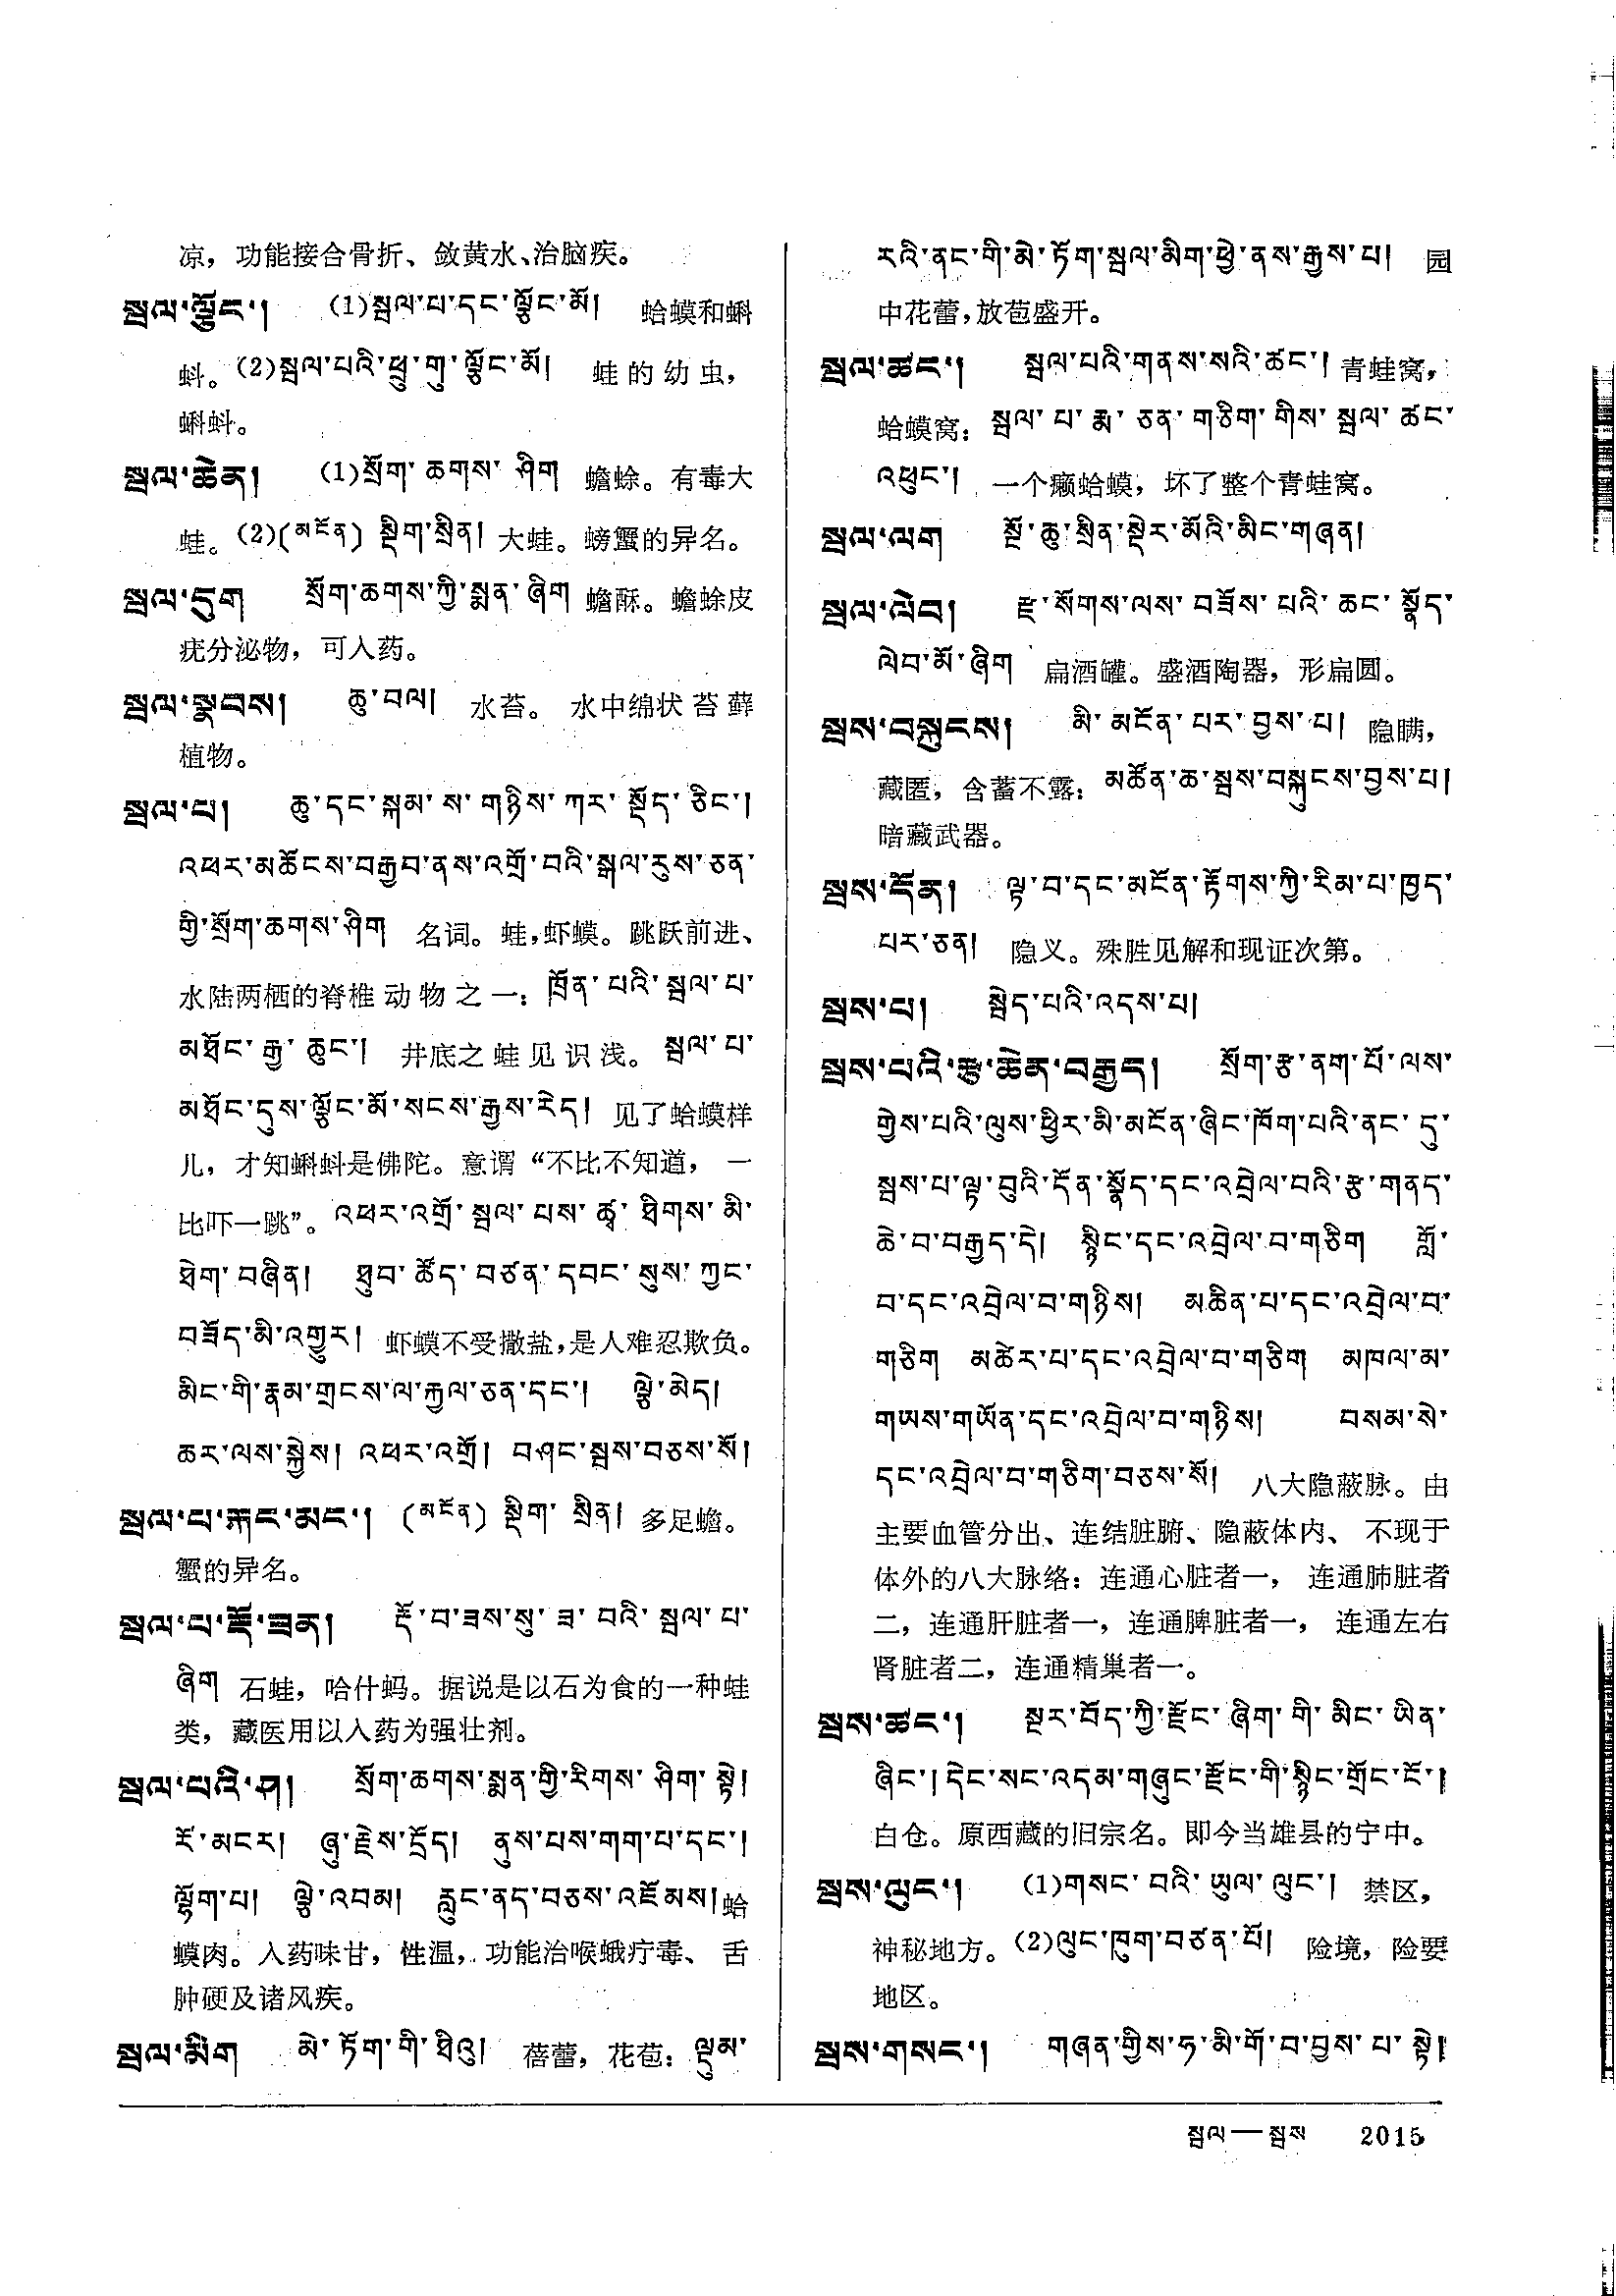 凉，功能接合骨折、敛黄水、治脑疾。
སྦལ་ལྕོང་། (1)སྦལ་པ་དང་ལྕོང་མོ། 蛤蟆和蝌
蚪。(2)སྦལ་པའི་ཕྲུ་གུ་ལྕོང་མོ། 蛙的幼虫，
蝌蚪。
སྦལ་ཆེན། (1)སྲོག་ཆགས་ཤིག 蟾蜍。有毒大
蛙。(2)(མངོན) སྡིག་སྲིན། 大蛙。螃蟹的异名。
སྦལ་དུག སྲོག་ཆགས་ཀྱི་སྨན་ཞིག 蟾酥。蟾蜍皮
疣分泌物，可入药。
སྦལ་སྣབས། ཆུ་བལ། 水苔。水中绵状苔藓
植物。
སྦལ་པ། ཆུ་དང་སྐམ་ས་གཉིས་ཀར་སྡོད་ཅིང་།
འཕར་མཆོངས་བརྒྱབ་ནས་འགྲོ་བའི་སྒལ་རུས་ཅན་
གྱི་སྲོག་ཆགས་ཤིག 名词。蛙，虾蟆。跳跃前进、
水陆两栖的脊椎动物之一：ཁྲོན་པའི་སྦལ་པ་
མཐོང་རྒྱ་ཆུང་། 井底之蛙见识浅。སྦལ་པ་
མཐོང་དུས་ལྕོང་མོ་སངས་རྒྱས་རེད། 见了蛤蟆样
儿，才知蝌蚪是佛陀。意谓“不比不知道，一
比吓一跳”。འཕར་འགྲོ་སྦལ་པས་ཚྭ་ཐིགས་མི་
ཐེག་བཞིན། ཐུབ་ཚོད་བཙན་དབང་སུས་ཀྱང་
བཟོད་མི་འགྱུར། 虾蟆不受撒盐，是人难忍欺负。
མིང་གི་རྣམ་གྲངས་ལ་རྐྱལ་ཅན་དང་། ལྕེ་མེད།
ཆར་ལས་སྐྱེས། འཕར་འགྲོ། བཤང་སྦས་བཅས་སོ།
སྦལ་པ་རྐང་མང་། (མངོན) སྡིག་སྲིན། 多足蟾。
蟹的异名。
སྦལ་པ་རྡོ་ཟན། རྡོ་བ་ཟས་སུ་ཟ་བའི་སྦལ་པ་
ཞིག 石蛙，哈什蚂。据说是以石为食的一种蛙
类，藏医用以入药为强壮剂。
སྦལ་པའི་ཤ། སྲོག་ཆགས་སྨན་གྱི་རིགས་ཤིག་སྟེ།
རོ་མངར། ཞུ་རྗེས་དྲོད། ནུས་པས་གག་པ་དང་།
ལྷོག་པ། ལྕེ་འབམ། རླུང་ནད་བཅས་འཇོམས། 蛤
蟆肉。入药味甘，性温，功能治喉蛾疔毒、舌
肿硬及诸风疾。
སྦལ་མིག མེ་ཏོག་གི་ཐིའུ། 蓓蕾，花苞：ལྡུམ་
རའི་ནང་གི་མེ་ཏོག་སྦལ་མིག་ཕྱེ་ནས་རྒྱས་པ། 园
中花蕾，放苞盛开。
སྦལ་ཚང་། སྦལ་པའི་གནས་སའི་ཚང་། 青蛙窝，
蛤蟆窝：སྦལ་པ་རྨ་ཅན་གཅིག་གིས་སྦལ་ཚང་
འཕུང་། 一个癞蛤蟆，坏了整个青蛙窝。
སྦལ་ལག སྔོ་ཆུ་སྲིན་སྡེར་མོའི་མིང་གཞན།
སྦལ་ལེབ། རྫ་སོགས་ལས་བཟོས་པའི་ཆང་སྣོད་
ལེབ་མོ་ཞིག 扁酒罐。盛酒陶器，形扁圆。
སྦས་བསྐུངས། མི་མངོན་པར་བྱས་པ། 隐瞒，
藏匿，含蓄不露：མཚོན་ཆ་སྦས་བསྐུངས་བྱས་པ།
暗藏武器。
སྦས་དོན། ལྟ་བ་དང་མངོན་རྟོགས་ཀྱི་རིམ་པ་ཁྱད་
པར་ཅན། 隐义。殊胜见解和现证次第。
སྦས་པ། སྦེད་པའི་འདས་པ།
སྦས་པའི་རྩ་ཆེན་བརྒྱད། སྲོག་རྩ་ནག་པོ་ལས་
གྱེས་པའི་ལུས་ཕྱིར་མི་མངོན་ཞིང་ཁོག་པའི་ནང་དུ་
སྦས་པ་ལྟ་བུའི་དོན་སྣོད་དང་འབྲེལ་བའི་རྩ་གནད་
ཆེ་བ་བརྒྱད་དེ། སྙིང་དང་འབྲེལ་བ་གཅིག གློ་
བ་དང་འབྲེལ་བ་གཉིས། མཆིན་པ་དང་འབྲེལ་བ་
གཅིག མཚེར་པ་དང་འབྲེལ་བ་གཅིག མཁལ་མ་
གཡས་གཡོན་དང་འབྲེལ་བ་གཉིས། བསམ་སེ་
དང་འབྲེལ་བ་གཅིག་བཅས་སོ། 八大隐蔽脉。由
主要血管分出、连结脏腑、隐蔽体内、不现于
体外的八大脉络：连通心脏者一，连通肺脏者
二，连通肝脏者一，连通脾脏者一，连通左右
肾脏者二，连通精巢者一。
སྦས་ཚང་། སྔར་བོད་ཀྱི་རྫོང་ཞིག་གི་མིང་ཡིན་
ཞིང་། དེང་སང་འདམ་གཞུང་རྫོང་གི་སྙིང་གྲོང་ངོ་།
白仓。原西藏的旧宗名。即今当雄县的宁中。
སྦས་ལུང་། (1)གསང་བའི་ཡུལ་ལུང་། 禁区，
神秘地方。(2)ལུང་ཁུག་བཙན་པོ། 险境，险要
地区。
སྦས་གསང་། གཞན་གྱིས་ཧ་མི་གོ་བ་བྱས་པ་སྟེ།
སྦལ—སྦས 2015